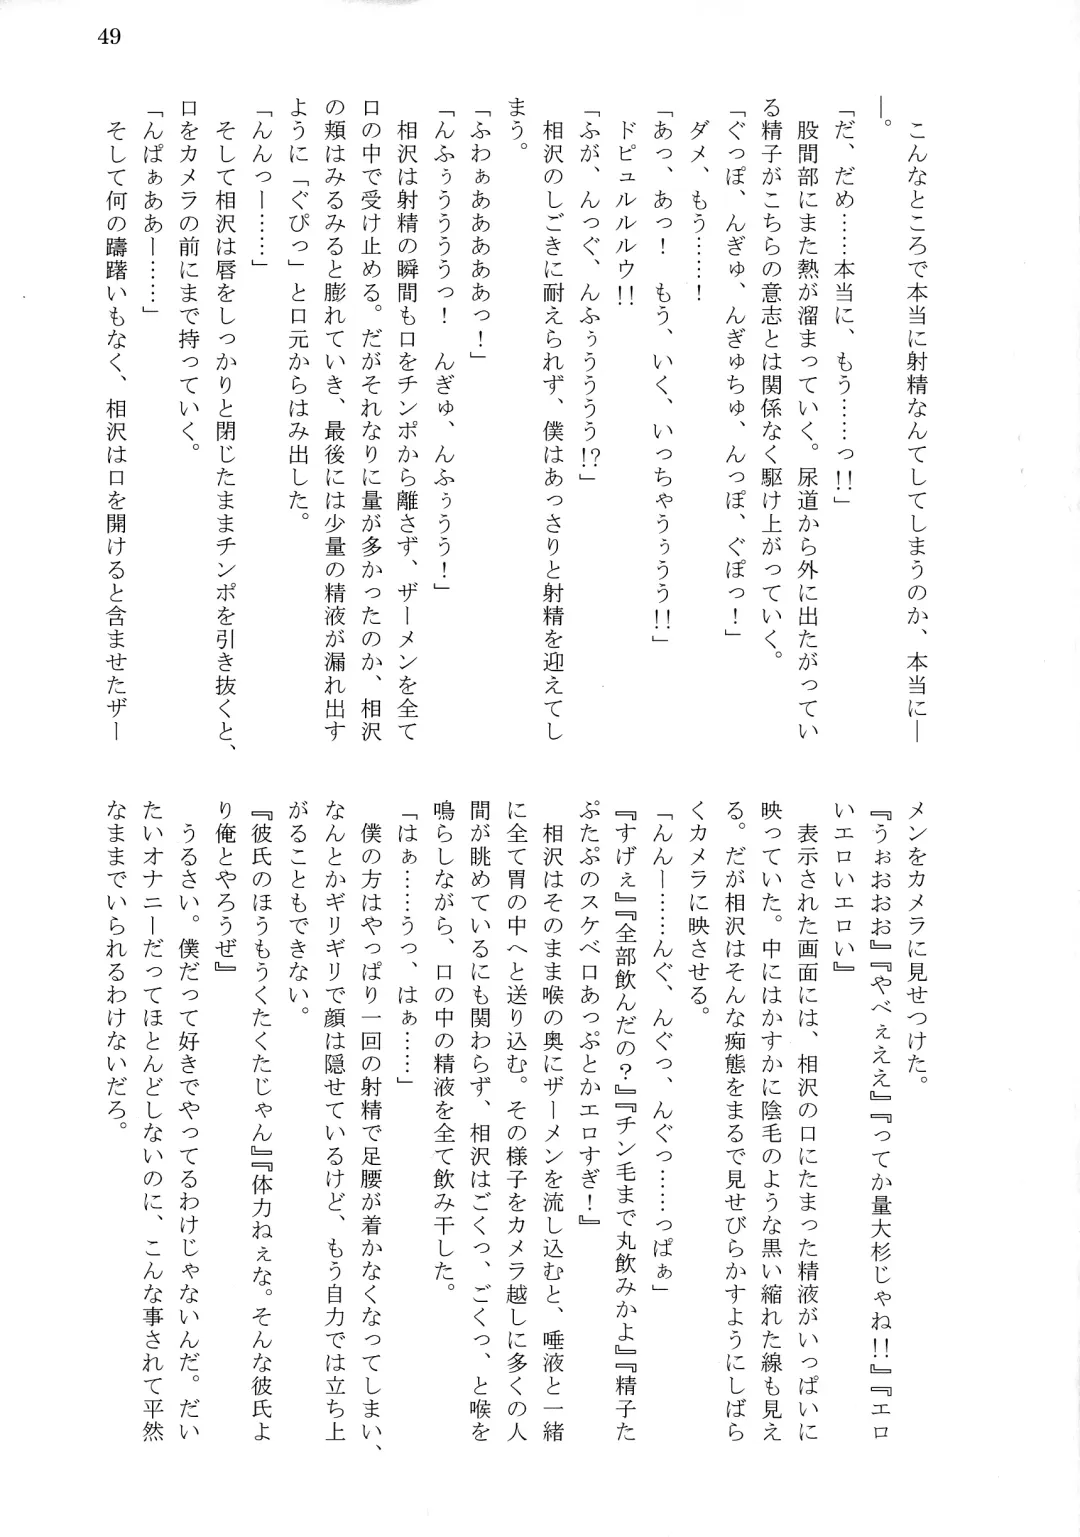 49
こんなところで本当に射精なんてしてしまうのか、本当に―
―。
「だ、だめ……本当に、もう……っ!!」
股間部にまた熱が溜まっていく。尿道から外に出たがってい
る精子がこちらの意志とは関係なく駆け上がっていく。
「ぐっぽ、んぎゅ、んぎゅちゅ、んっぽ、ぐぽっ！」
ダメ、もう……！
「あっ、あっ！　もう、いく、いっちゃうぅうう!!」
ドピュルルルウ!!
「ふが、んっぐ、んふぅうううう!?」
相沢のしごきに耐えられず、僕はあっさりと射精を迎えてし
まう。
「ふわぁああああああっ！」
「んふぅうううううっ！　んぎゅ、んふぅうう！」
相沢は射精の瞬間も口をチンポから離さず、ザーメンを全て
口の中で受け止める。だがそれなりに量が多かったのか、相沢
の頬はみるみると膨れていき、最後には少量の精液が漏れ出す
ように「ぐぴっ」と口元からはみ出した。
「んんっー……」
そして相沢は唇をしっかりと閉じたままチンポを引き抜くと、
口をカメラの前にまで持っていく。
「んぱぁああー……」
そして何の躊躇いもなく、相沢は口を開けると含ませたザー
メンをカメラに見せつけた。
『うぉおおお』『やべぇええ』『ってか量大杉じゃね!!』『エロ
いエロいエロい』
表示された画面には、相沢の口にたまった精液がいっぱいに
映っていた。中にはかすかに陰毛のような黒い縮れた線も見え
る。だが相沢はそんな痴態をまるで見せびらかすようにしばら
くカメラに映させる。
「んんー……んぐ、んぐっ、んぐっ……っぱぁ」
『すげぇ』『全部飲んだの？』『チン毛まで丸飲みかよ』『精子た
ぷたぷのスケベロあっぷとかエロすぎ！』
相沢はそのまま喉の奥にザーメンを流し込むと、唾液と一緒
に全て胃の中へと送り込む。その様子をカメラ越しに多くの人
間が眺めているにも関わらず、相沢はごくっ、ごくっ、と喉を
鳴らしながら、口の中の精液を全て飲み干した。
「はぁ……うっ、はぁ……」
僕の方はやっぱり一回の射精で足腰が着かなくなってしまい、
なんとかギリギリで顔は隠せているけど、もう自力では立ち上
がることもできない。
『彼氏のほうもうくたくたじゃん』『体力ねぇな。そんな彼氏よ
り俺とやろうぜ』
うるさい。僕だって好きでやってるわけじゃないんだ。だい
たいオナニーだってほとんどしないのに、こんな事されて平然
なままでいられるわけないだろ。